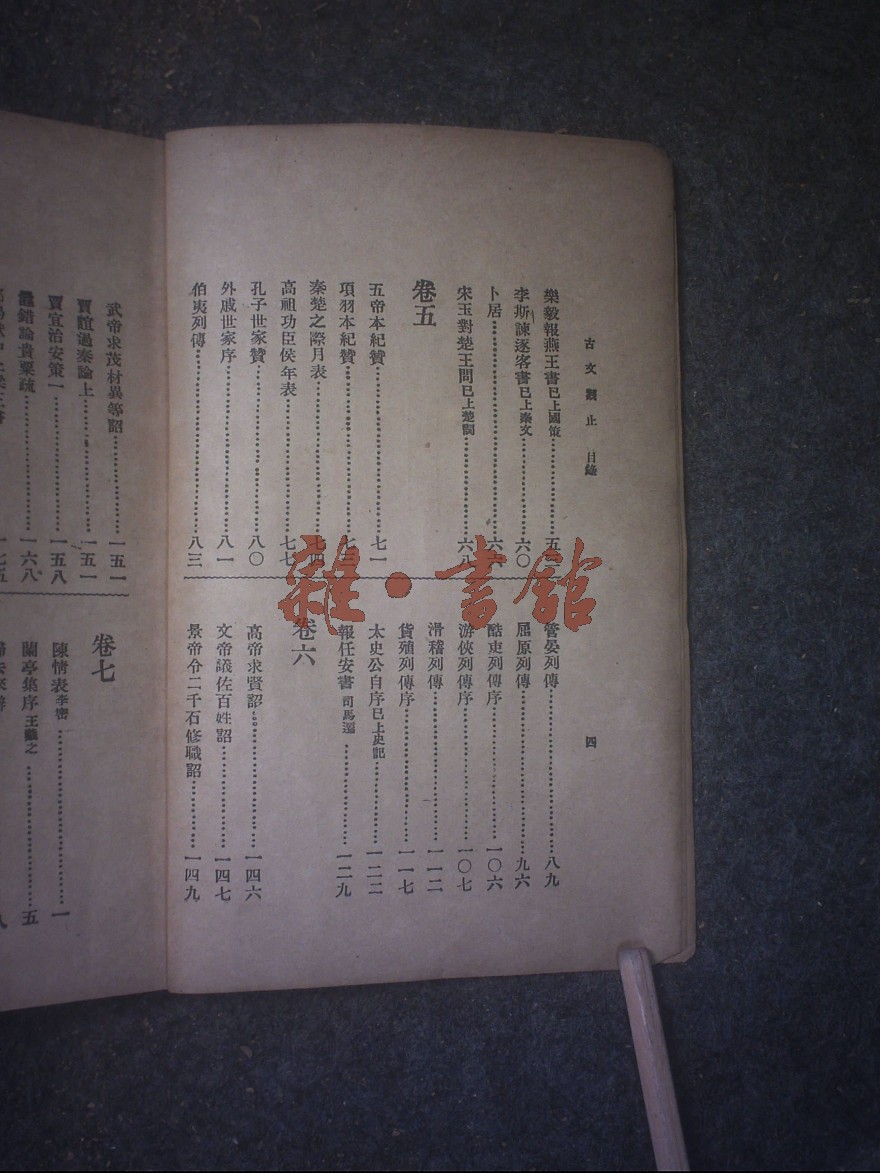 古文觀止 目錄
四
樂毅報燕王書已上國策 五
李斯諫逐客書已上秦文 六〇
卜居 六
宋玉對楚王問已上楚詞 六八
卷五
五帝本紀贊 七一
項羽本紀贊 七
秦楚之際月表 七四
高祖功臣侯年表 七七
孔子世家贊 八〇
外戚世家序 八一
伯夷列傳 八三
管晏列傳 八九
屈原列傳 九六
酷吏列傳序 一〇六
游俠列傳序 一〇七
滑稽列傳 一一二
貨殖列傳序 一一七
太史公自序已上史記 一二二
報任安書 司馬遷 一二九
卷六
高帝求賢詔 一四六
文帝議佐百姓詔 一四七
景帝令二千石修職詔 一四九
武帝求茂材異等詔 一五一
賈誼過秦論上 一五一
賈宜治安策一 一五八
鼂錯論貴粟疏 一六八
一七五
卷七
陳情表 李密 一
蘭亭集序 王羲之 五
雜·書館